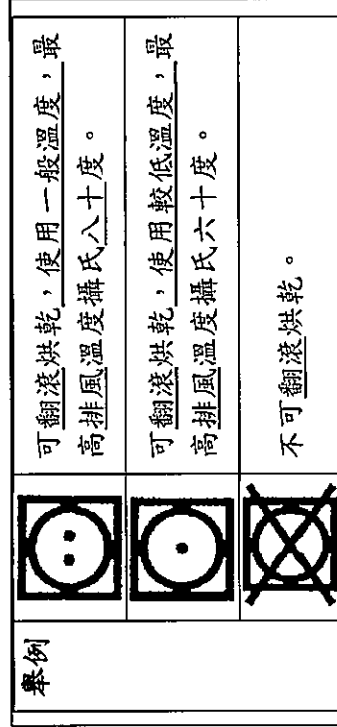 舉例
可翻滾烘乾，使用一般溫度，最
高排風溫度攝氏八十度。
可翻滾烘乾，使用較低溫度，最
高排風溫度攝氏六十度。
不可翻滾烘乾。